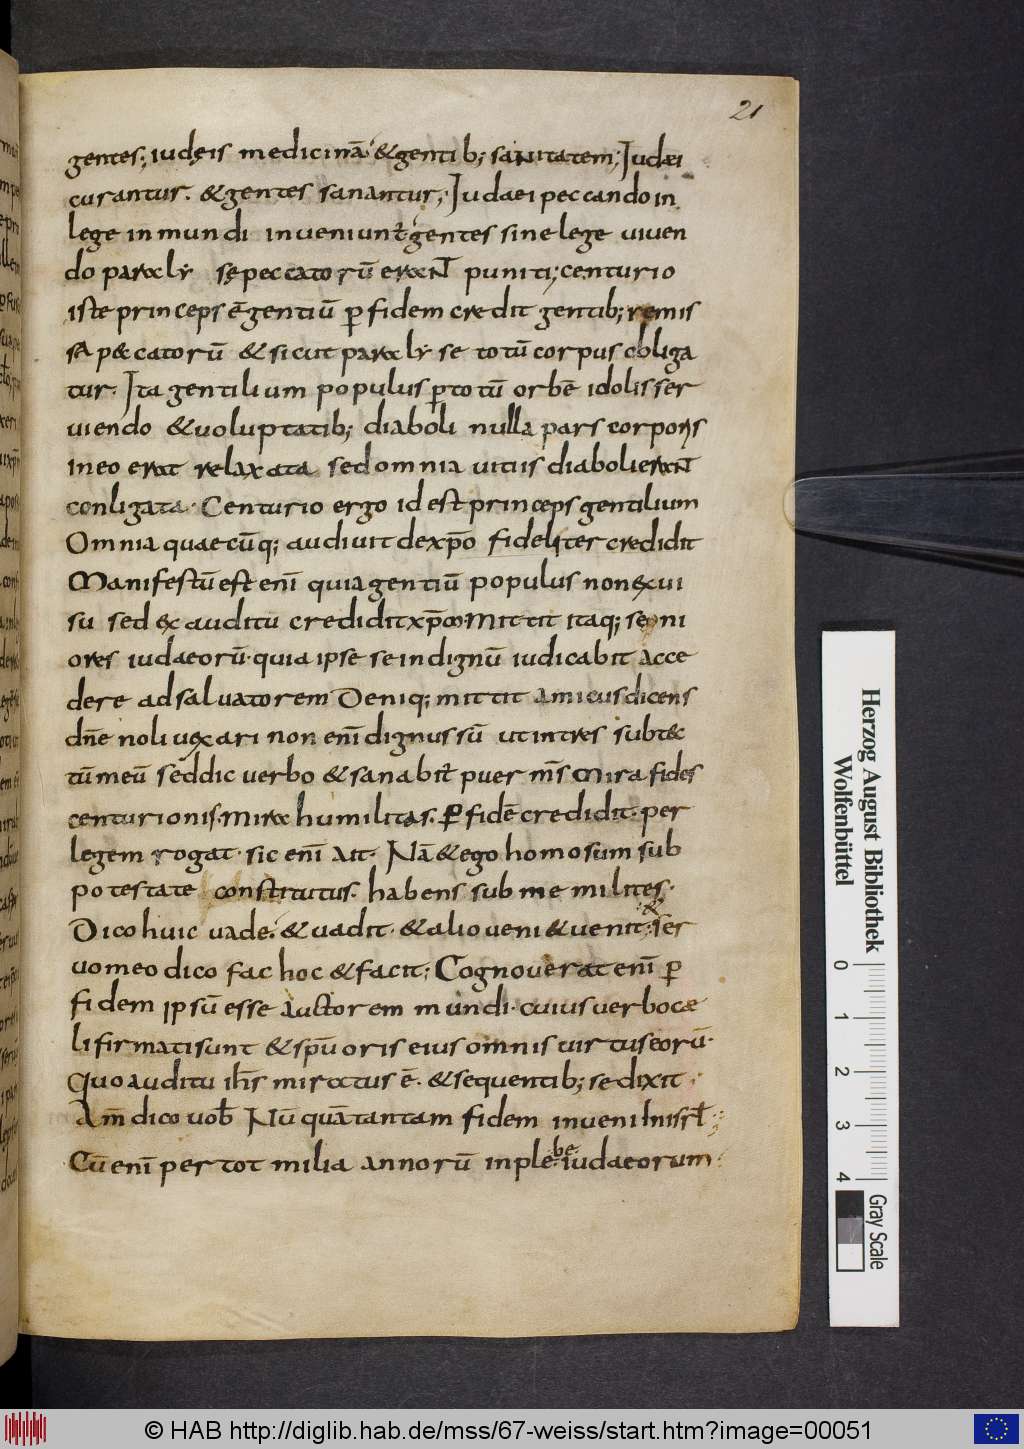 21
gentes; iudęis medicinā &gentib; sanitatem; Iudaei
curantur. &gentes sanantur; Iudaei peccando in
lege inmundi inveniunt̄ gentes sine lege viven
do paralẏ sępeccatorū erant puniti; centurio
iste princeps ē gentiū ꝑ fidem credit gentib; remis
sa p&catorū & sicut paralẏ se totū corpus obliga
tur. Ita gentilium populus ꝑ totū orbē idolis ser
uiendo &uoluptatib; diaboli nulla pars corporis
in eo erat relaxata sed omnia vitiis diaboli erant
conligata. Centurio ergo id est princeps gentilium
Omnia quaecūq; audivit dexp̄o fideliter credidit
Manifestū est enī quia gentiū populus non exui
su sed ex auditu credidit xp̄o Mittit itaq; seni
ores iudaeorū. quia ipse se indignū iudicabit acce
dere ad salvatorem Deniq; mittit amicus dicens
dn̄e noli uexari non enī dignus sū ut intres subtec
tū meū sed dic verbo & sanabit̄ puer m̄s Mira fides
centurionis. Mira humilitas. ꝑ fidē credidit. per
legem rogat. sic enī ait. Nā & ego homo sum sub
potestate constitutus. habens sub me milites.
Dico huic vade. & vadit. & alio veni & venit. & ser
vo meo dico fac hoc & facit; Cognoverat enī ꝑ
fidem ipsū esse auctorem mundi. cuius verbo cæ
li firmati sunt & spū oris eius omnis virtus eorū.
Quo auditu ih̄s miratus ē. & sequentib; se dixit
Am̄ dico vob̄ Nū quā tantam fidem inveni in isrł
Cū enī per tot milia annorū in plebe iudaeorum
Herzog August Bibliothek
Wolfenbüttel
0 1 2 3 4
Gray Scale
© HAB http://diglib.hab.de/mss/67-weiss/start.htm?image=00051